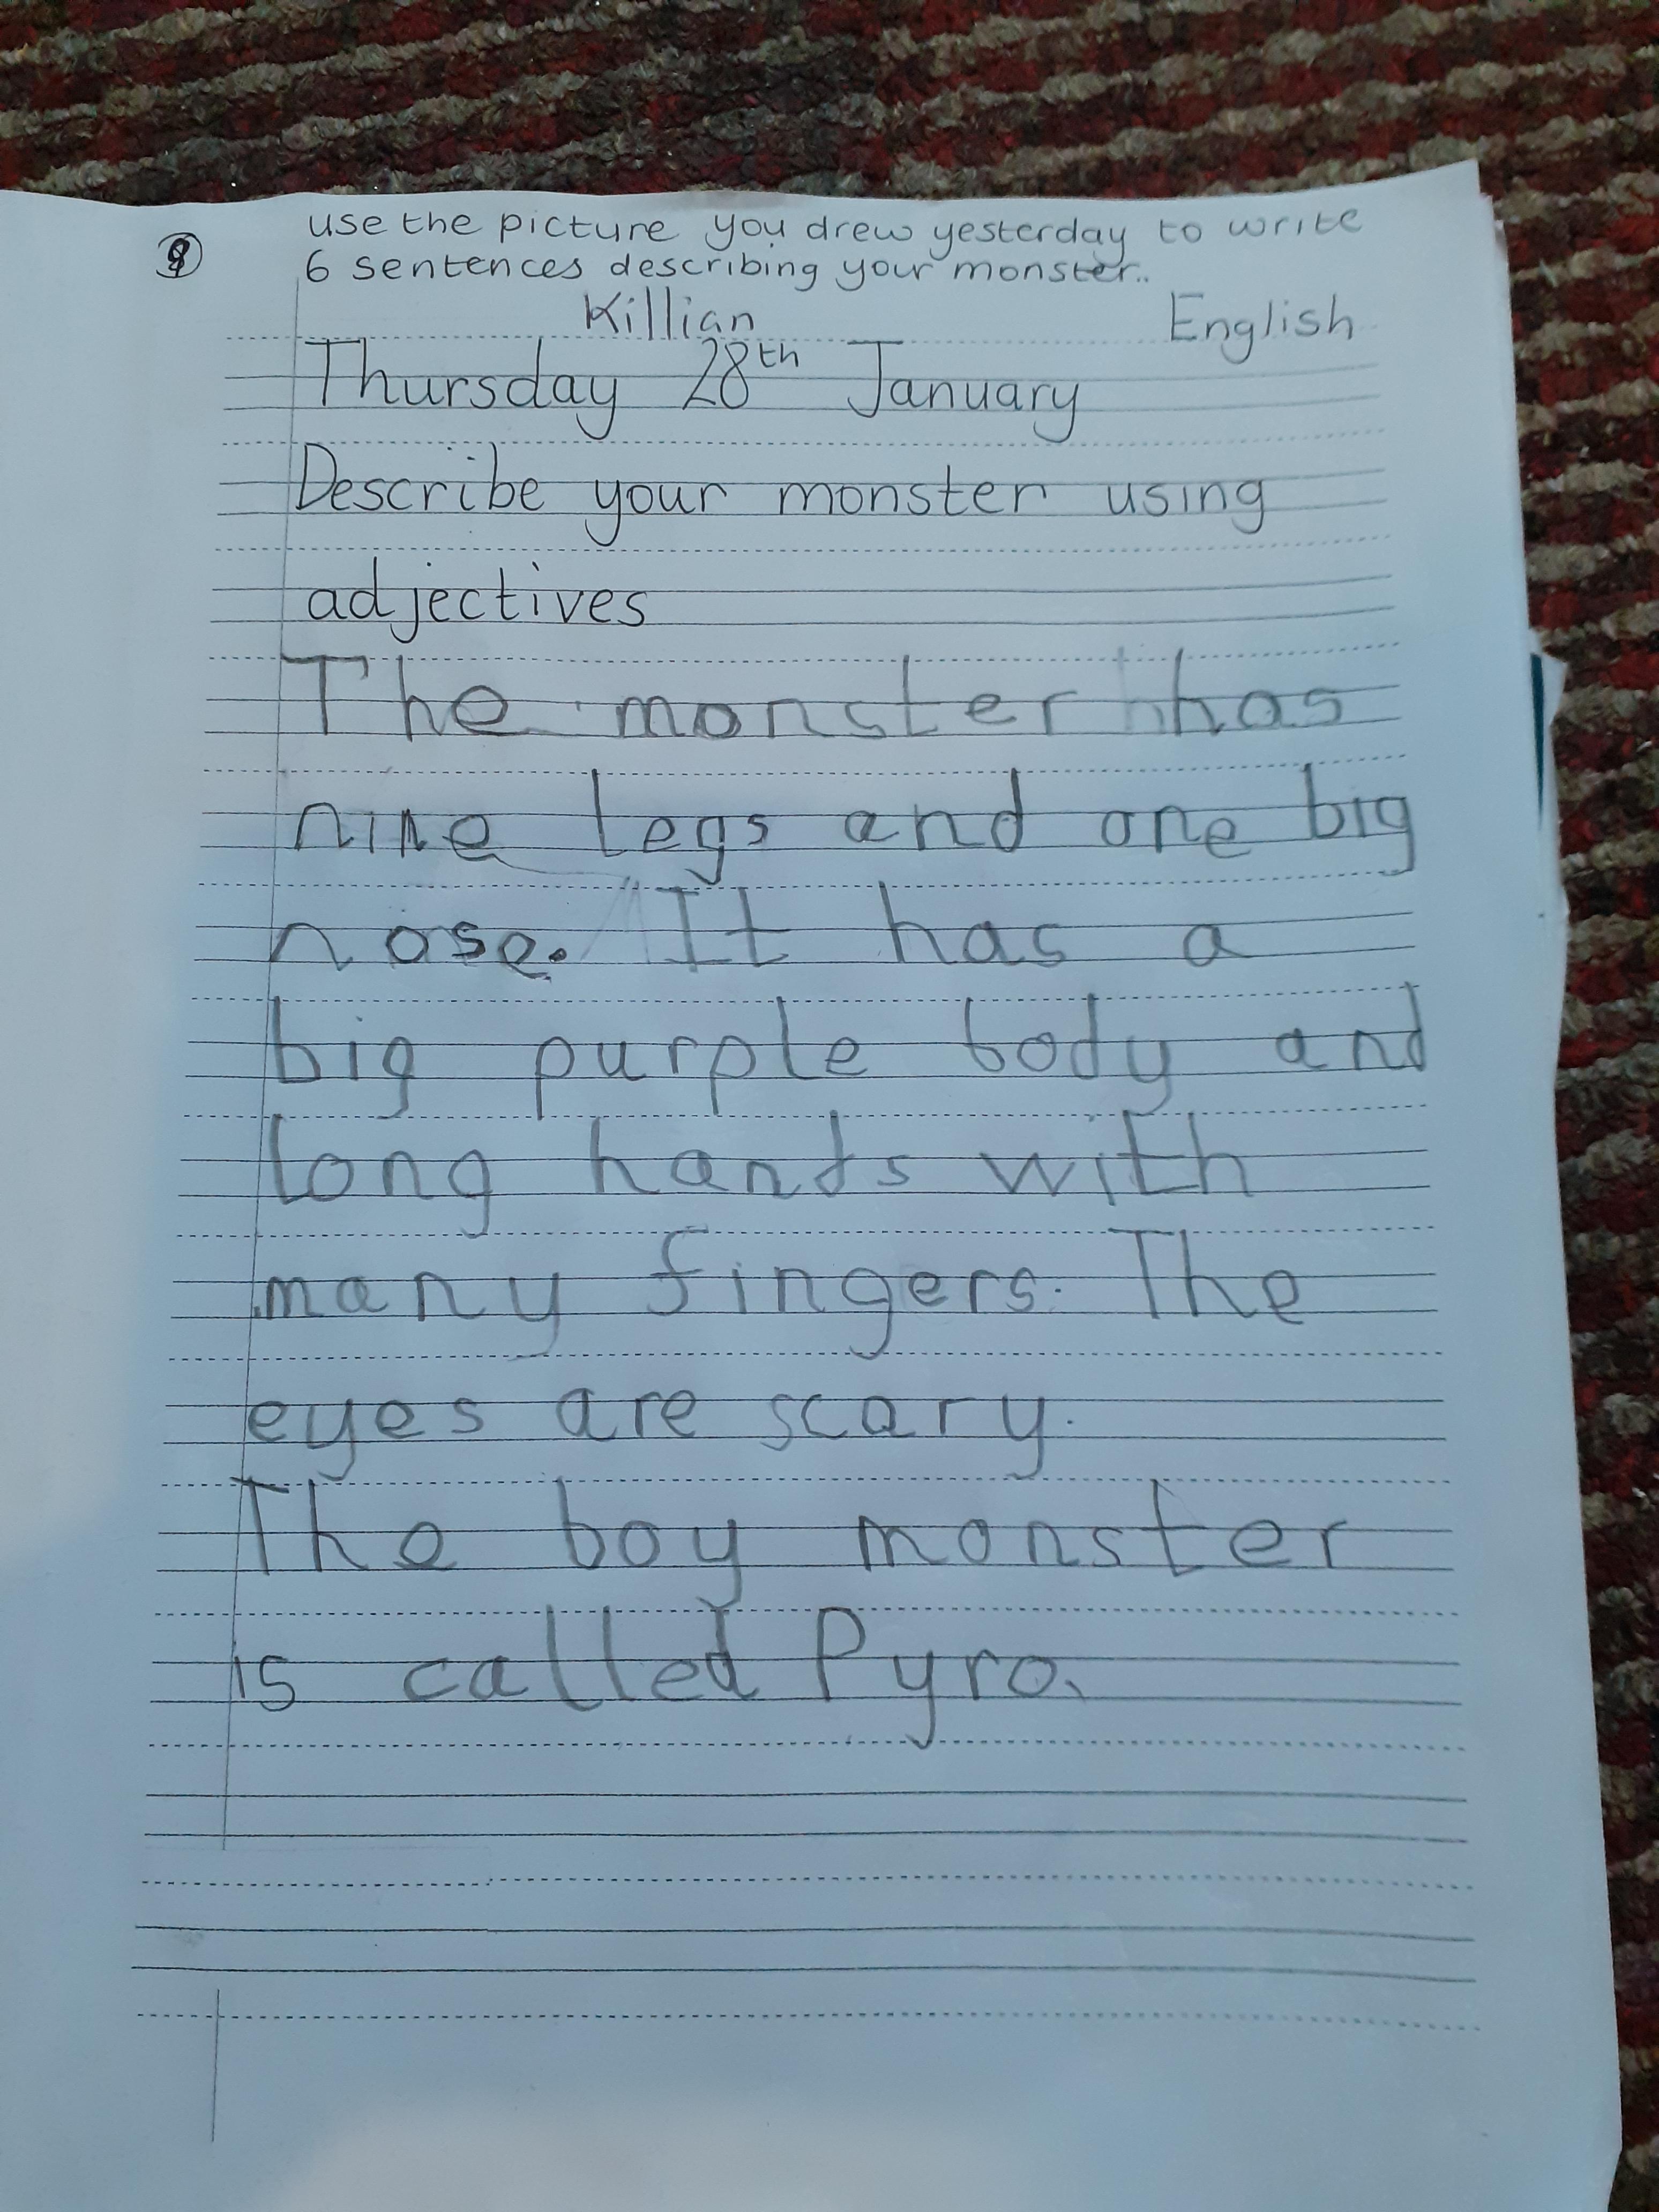 use the picture you drew yesterday to write
6 sentences describing your monster..
Killian English
Thursday 28th January
Describe your monster using
adjectives
The monster has
nine legs and one big
nose. It has a
big purple body and
long hands with
many fingers. The
eyes are scary.
The boy monster
is called Pyro.